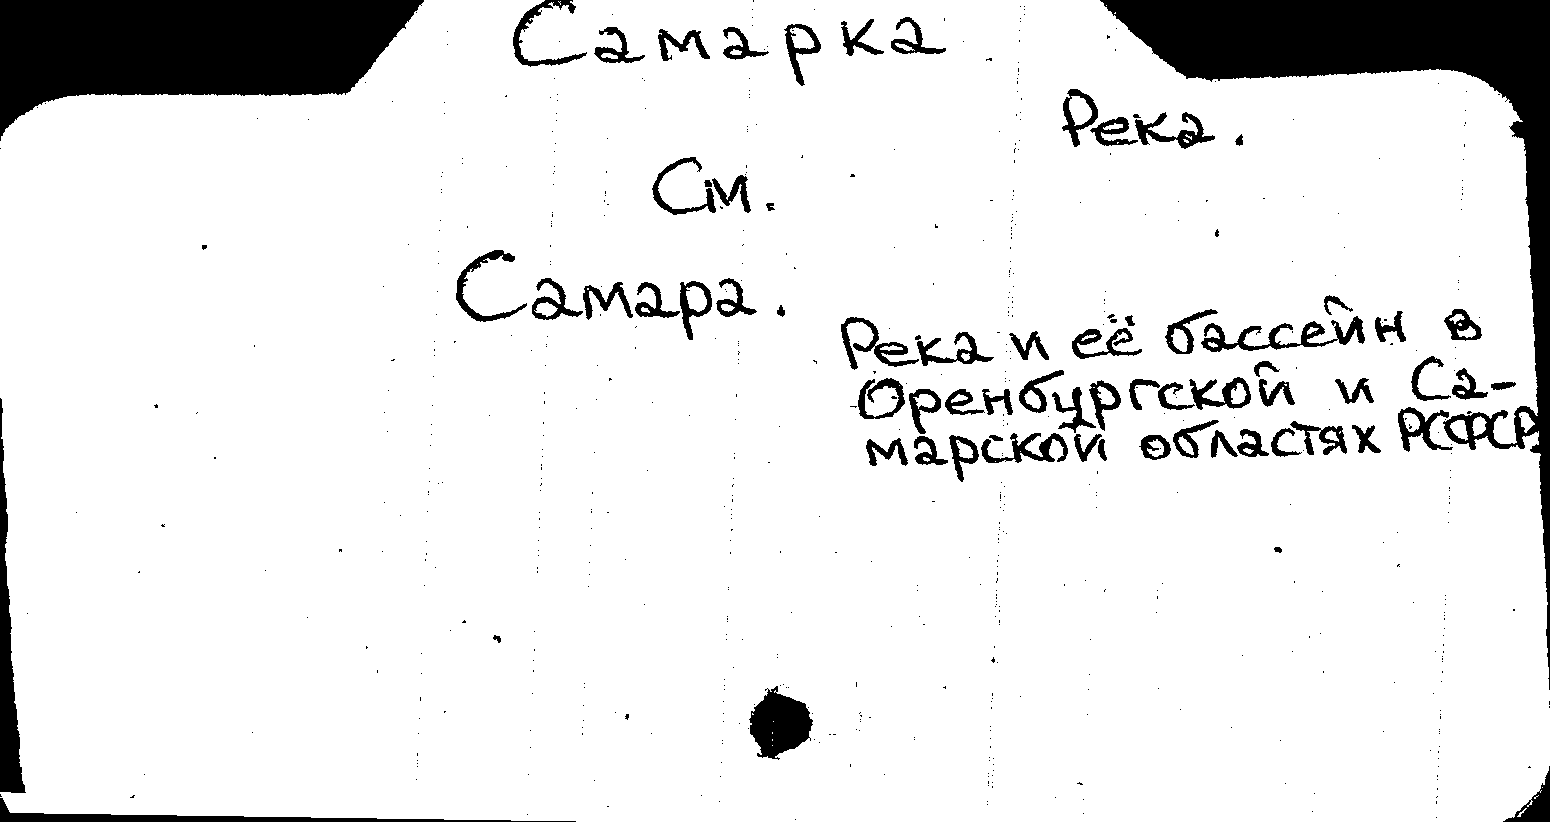 Самарка
Река.
См.
Самара.
Река и её бассейн в
Оренбургской и Са-
марской областях РСФСР.